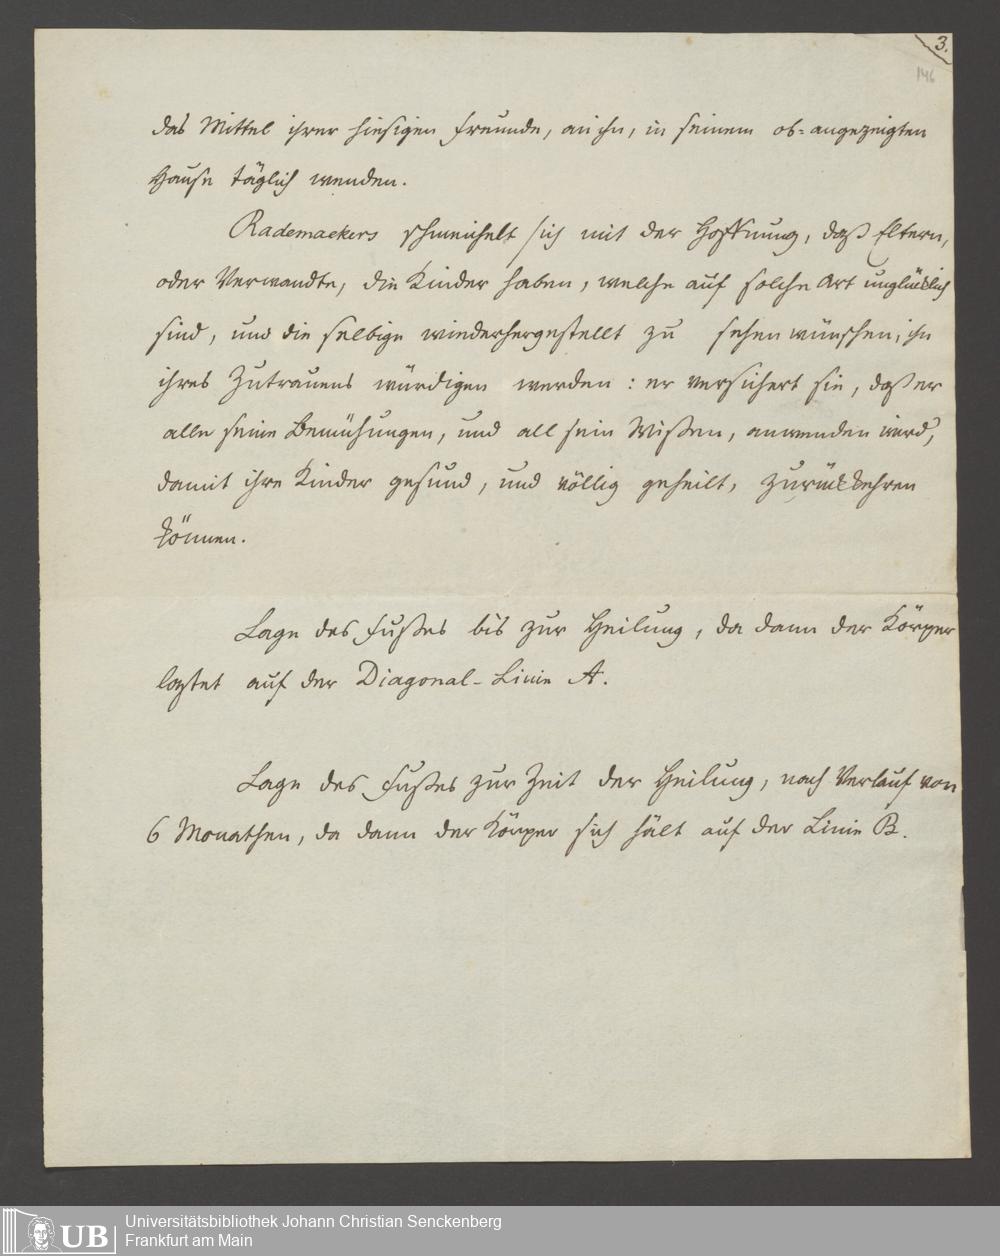 3.
146
das Mittel ihrer hiesigen Freunde, an ihn, in seinem ob=angezeigten
Hause täglich wenden.
Rademaekers schmeichelt sich mit der Hoffnung, daß Eltern,
oder Verwandte, die Kinder haben, welche auf solche Art unglücklich
sind, und die selbige wiederhergestellt zu sehen wünschen, ihn
ihres Zutrauens würdigen werden: er versichert sie, daß er
alle seine Bemühungen, und all sein Wißen, anwenden wird,
damit ihre Kinder gesund, und völlig geheilt, zurückkehren
können.
Lage des Fußes bis zur Heilung, da dann der Körper
lastet auf der Diagonal-Linie A.
Lage des Fußes zur Zeit der Heilung, nach Verlauf von
6 Monathen, da dann der Körper sich hält auf der Linie B.
UB
Universitätsbibliothek Johann Christian Senckenberg
Frankfurt am Main